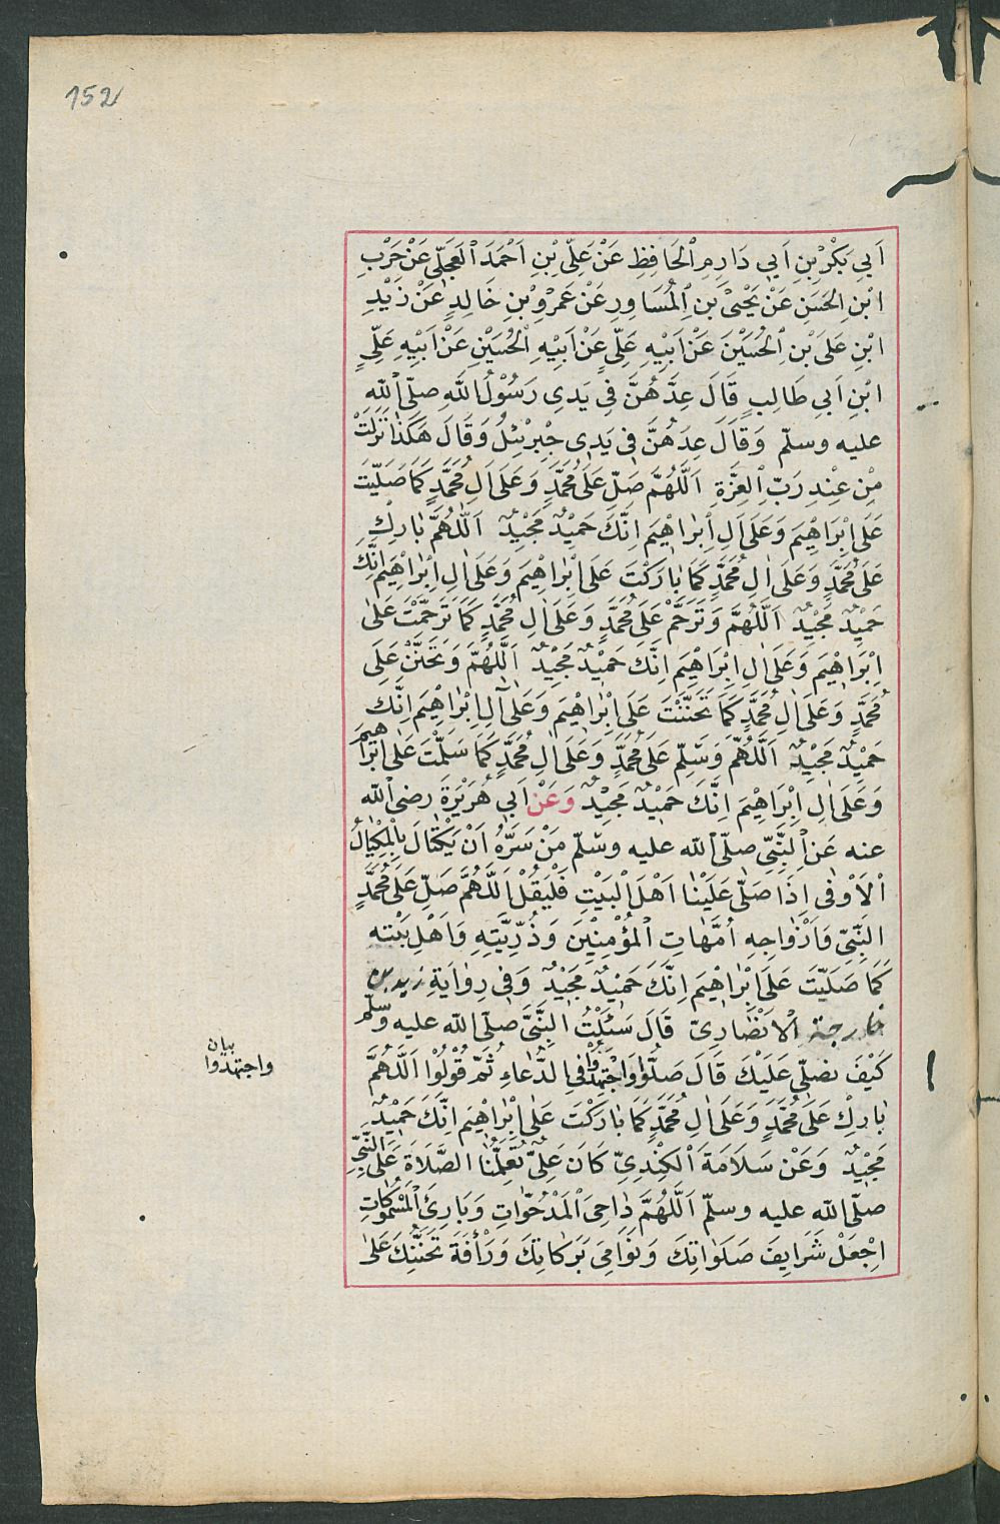 152
اَبِي بَكْرِ بْنِ اَبِي دَارِمِ الْحَافِظِ عَنْ عَلِيِّ بْنِ اَحْمَدَ الْعِجْلِيِّ عَنْ حَرْبِ
ابْنِ الْحَسَنِ عَنْ يَحْيَى بْنِ الْمُسَاوِرِ عَنْ عَمْرِو بْنِ خَالِدٍ عَنْ زَيْدِ
ابْنِ عَلَى بْنِ الْحُسَيْنَ عَنْ اَبِيْهِ عَلِيٍّ عَنْ اَبِيْهِ الْحُسَيْنِ عَنْ اَبِيْهِ عَلِيِّ
ابْنِ اَبِي طَالِبٍ قَالَ عِدَّهُنَّ فِي يَدِي رَسُوْلُ اللّٰهِ صلّى الله
عليه وسلّم وَقَالَ عِدَهُنَّ فِي يَدِي جِبْرِئِلُ وَقَالَ هٰكَذَا نَزَلَتْ
مِنْ عِنْدِ رَبِّ الْعِزَّةِ اَللّٰهُمَّ صَلِّ عَلَى مُحَمَّدٍ وَعَلَى اٰلِ مُحَمَّدٍ كَمَا صَلَّيْتَ
عَلَى اِبْرَاهِيْمَ وَعَلَى اٰلِ اِبْرَاهِيْمَ اِنَّكَ حَمِيْدٌ مَجِيْدٌ اَللّٰهُمَّ بَارِكْ
عَلَى مُحَمَّدٍ وَعَلَى اٰلِ مُحَمَّدٍ كَمَا بَارَكْتَ عَلَى اِبْرَاهِيْمَ وَعَلَى اٰلِ اِبْرَاهِيْمَ اِنَّكَ
حَمِيْدٌ مَجِيْدٌ اَللّٰهُمَّ وَتَرَحَّمْ عَلَى مُحَمَّدٍ وَعَلَى اٰلِ مُحَمَّدٍ كَمَا تَرَحَّمْتَ عَلَى
اِبْرَاهِيْمَ وَعَلَى اٰلِ اِبْرَاهِيْمَ اِنَّكَ حَمِيْدٌ مَجِيْدٌ اَللّٰهُمَّ وَتَحَنَّنْ عَلَى
مُحَمَّدٍ وَعَلَى اٰلِ مُحَمَّدٍ كَمَا تَحَنَّنْتَ عَلَى اِبْرَاهِيْمَ وَعَلَى اٰلِ اِبْرَاهِيْمَ اِنَّكَ
حَمِيْدٌ مَجِيْدٌ اَللّٰهُمَّ وَسَلِّمْ عَلَى مُحَمَّدٍ وَعَلَى اٰلِ مُحَمَّدٍ كَمَا سَلَّمْتَ عَلَى ابْرَاهِيْمَ
وَعَلَى اٰلِ اِبْرَاهِيْمَ اِنَّكَ حَمِيْدٌ مَجِيْدٌ وَعَنْ اَبِي هُرَيْرَةَ رضى الله
عنه عَنِ النَّبِيِّ صلّى الله عليه وسلّم مَنْ سَرَّهُ اَنْ يَكْتَالَ بِالْمِكْيَالُ
الْاَوْفَى اِذَا صَلّٰى عَلَيْنَا اَهْلَ الْبَيْتِ فَلْيَقُلْ اَللّٰهُمَّ صَلِّ عَلَى مُحَمَّدٍ
النَّبِيِّ وَاَزْوَاجِهِ اُمَّهَاتِ الْمُؤْمِنِيْنَ وَذُرِّيَّتِهِ وَاَهْلِ بَيْتِهِ
كَمَا صَلَيْتَ عَلَى اِبْرَاهِيْمَ اِنَّكَ حَمِيْدٌ مَجِيْدٌ وَفِي رِوَايَةِ زيد بن
خارجة الْاَنْصَارِيِّ قَالَ سَئَلْتُ النَّبِيَّ صلّى الله عليه وسلّم
كَيْفَ نصَلّي عَلَيْكَ قَالَ صَلُّوْا وَاجْتَهِدُوْا فِي الدُّعَاءِ ثُمَّ قُوْلُوْا اَللّٰهُمَّ
بَارِكْ عَلَى مُحَمَّدٍ وَعَلَى اٰلِ مُحَمَّدٍ كَمَا بَارَكْتَ عَلَى اِبْرَاهِيْمَ اِنَّكَ حَمِيْدٌ
مَجِيْدٌ وَعَنْ سَلَامَةَ الْكِنْدِيِّ كَانَ عَلِيٌّ تُعَلِّمُنَا الصَّلَاةَ عَلَى النَّبِيِّ
صلّى الله عليه وسلّم اَللّٰهُمَّ دَاحِيَ الْمَدْحُوَّاتِ وَبَارِئَ الْمَسْمُوكَاتِ
اِجْعَلْ شَرَايِفَ صَلَوَاتِكَ وَنَوَامِيَ بَرَكَاتِكَ وَرَأْفَةَ تَحَنُّنِكَ عَلَى
بيان
واجتهدوا